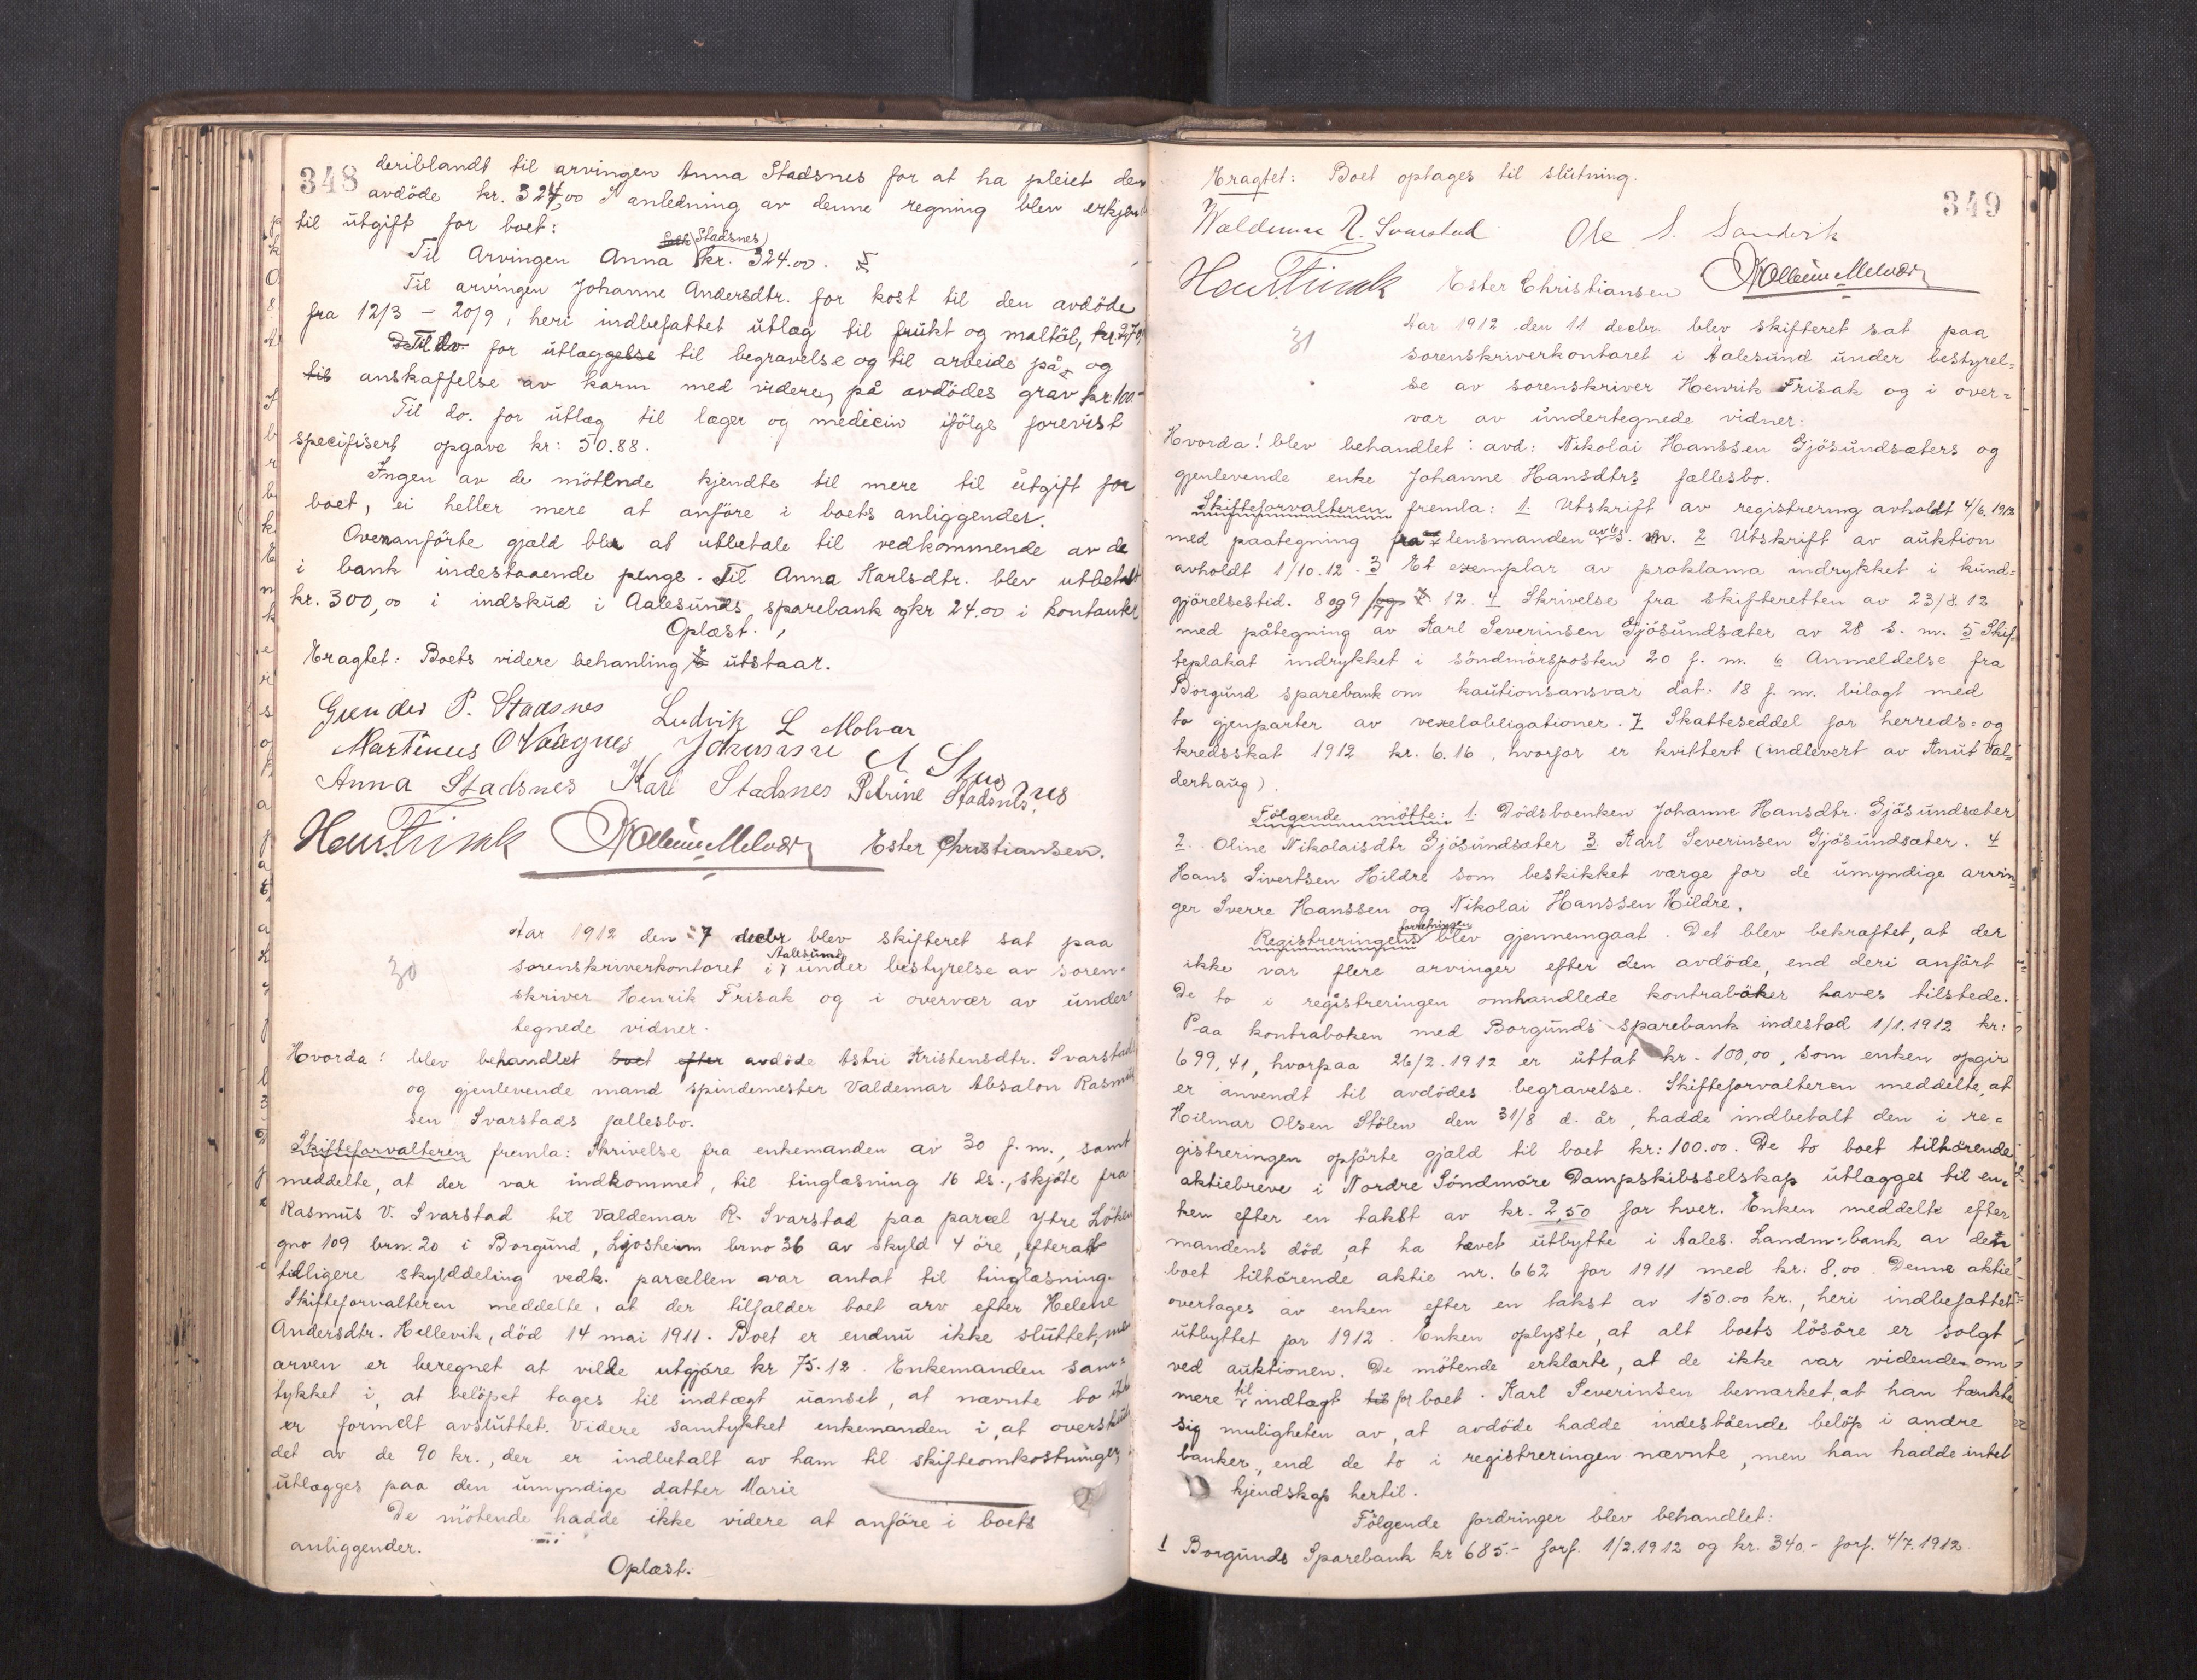 348
deriblandt til arvingen Anna Stadsnes for at ha pleiet den
avdöde kr. 324,00 I anledning av denne regning blev erkjendt
til utgift for boet:
Til Arvingen Anna Stadsnes kr. 324.00.
Til arvingen Johanne Andersdtr. for kost til den avdöde
fra 12/3 - 20/9, heri indbefattet utlæg til frukt og maltöl, kr.
Til do. for utlæggelse til begravelse og til arbeide på og
til anskaffelse av karm med videre, på avdödes grav kr 100-
Til do. for utlæg til læger og medicin ifölge forevist
specifisert opgave kr: 50.88.
Ingen av de mötende kjendte til mere til utgift for
boet, ei heller mere at anföre i boets anliggender.
Ovenanförte gjæld blev at utbetale til vedkommende av de
i bank indestaaende penge. Til Anna Karlsdtr. blev utbetalt
kr. 300,00 i indskud i Aalesunds sparebank og kr 24.00 i kontanter
Oplæst.
Eragtet: Boets videre behanling utstaar.
Gunder P. Stadsnes Ludvik L Molvær
Martinus O Valgnes Johanne A
Anna Stadsnes Kari Stadsnes Petrine Stadsnes
Hen. Frisak Ester Christiansen.
30
Aar 1912 den 7 decbr blev skifteret sat paa
sorenskriverkontoret i Aalesund under bestyrelse av soren-
skriver Henrik Frisak og i overvær av under-
tegnede vidner.
Hvorda! blev behandlet boet efter avdöde Astri Kristensdtr. Svarstad
og gjenlevende mand spindemester Valdemar Absalon Rasmus
sen Svarstads fællesbo.
Skifteforvalteren fremla: Skrivelse fra enkemanden av 30 f.m., samt
meddelte, at der var indkommet, til tinglæsning 16 ds., skjöte fra
Rasmus V. Svarstad til Valdemar R. Svarstad paa parcel ytre Löken
gno 109 brn. 20 i Borgund, Ljosheim brno 36 av skyld 4 öre, efterat
tidligere skylddeling vedk. parcellen var antat til tinglæsning.
Skifteforvalteren meddelte, at der tilfalder boet arv efter Helene
Andersdtr. Hellevik, död 14 mai 1911. Boet er endnu ikke sluttet, men
arven er beregnet at vilde utgjöre kr 75.12. Enkemanden sam-
tykket i, at belöpet tages til indtægt uanset, at nævnte bo ikke
er formelt avsluttet. Videre samtykket enkemanden i, at overskud
det av de 90 kr., der er indbetalt av ham til skifteomkostninger,
utlægges paa den umyndige datter Marie
De mötende hadde ikke videre at anföre i boets
anliggender.
Oplæst.
349
Eragtet: Boet optages til slutning.
Waldemar R. Svarstad Ole S. Sandvik
Hen. Frisak Ester Christiansen
31
Aar 1912 den 11 decbr. blev skifteret sat paa
sorenskriverkontoret i Aalesund under bestyrel-
se av sorenskriver Henrik Frisak og i over-
vær av undertegnede vidner.
Hvorda! blev behandlet: avd: Nikolai Hanssen Gjösundsæters og
gjenlevende enke Johanne Hansdtrs fællesbo.
Skifteforvalteren fremla: 1. Utskrift av registrering avholdt 4/6. 1912
med paategning fra lensmanden av s. m. 2 Utskrift av auktion
avholdt 1/10.12. 3 Et exemplar av proklama indrykket i kund-
gjörelsestid. 8 og 9/ 12. 4 Skrivelse fra skifteretten av 23/8.12
med påtegning av Karl Severinsen Gjösundsæter av 28 s. m. 5 Skif-
teplakat indrykket i söndmörsposten 20 f. m. 6 Anmeldelse fra
Borgund sparebank om kautionsansvar dat: 18 f. m. bilagt med
to gjenparter av vexelobligationer. 7 Skatteseddel for herreds- og
kredsskat 1912 kr. 6.16, hvorfor er kvittert (indlevert av Knut Val-
derhaug).
Følgende mötte: 1. Dödsboenken Johanne Hansdtr. Gjösundsæter
2. Oline Nikolaisdtr Gjösundsæter 3. Karl Severinsen Gjösundsæter. 4
Hans Sivertsen Hildre som beskikket værge for de umyndige arvin-
ger Sverre Hanssen og Nikolai Hanssen Hildre.
Registreringsforretningen blev gjennemgaat. Det blev bekræftet, at der
ikke var flere arvinger efter den avdöde, end deri anfört
De to i registreringen omhandlede kontraböker haves tilstede.
Paa kontraboken med Borgunds sparebank indestod 1/1.1912 kr:
699,41, hvorpaa 26/2.1912 er uttat kr. 100,00, som enken opgir
er anvendt til avdödes begravelse. Skifteforvalteren meddelte, at
Hilmar Olsen Stölen den 31/8 d. år, hadde indbetalt den i re-
gistreringen opförte gjæld til boet kr: 100.00. De to boet tilhörende
aktiebreve i Nordre Söndmöre Dampskibsselskap utlægges til en-
ken efter en takst av kr. 2,50 for hver. Enken meddelte efter
mandens död, at ha hævet utbytte i Aales. Landm-bank av den
boet tilhörende aktie nr. 662 for 1911 med kr. 8,00. Denne aktie
overtages av enken efter en takst av 150.00 kr., heri indbefattet
utbyttet for 1912. Enken oplyste, at alt boets lösöre er solgt
ved auktionen. De mötende erklærte, at de ikke var vidende om
mere til indtægt til for boet. Karl Severinsen bemærket, at han tænkte
sig muligheten av, at avdöde hadde indestående belöp i andre
banker, end de to i registreringen nævnte, men han hadde intet
kjendskap hertil.
Følgende fordringer blev behandlet:
1 Borgunds Sparebank kr 685.- forf. 1/2.1912 og kr. 340.- forf. 4/7.1912